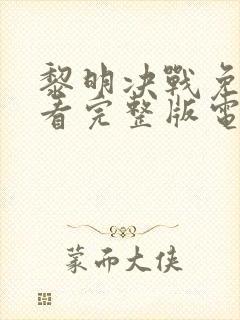 黎明決戰免
看完整版電
蒙而大侠